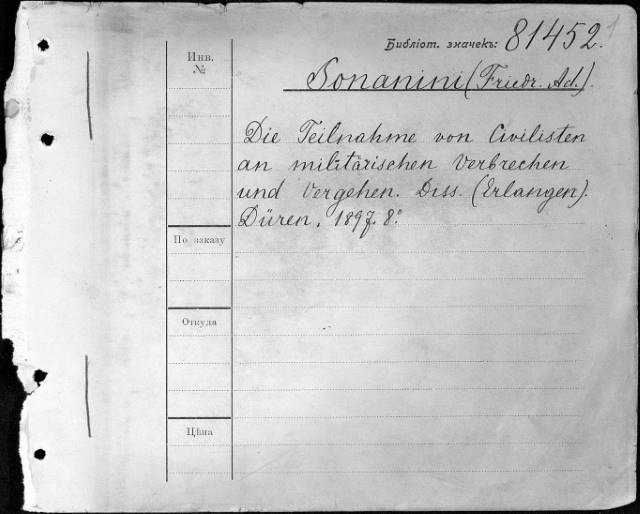 Библіот. значекъ: 81452.
Инв.
№
Ponanini (Friedr. Ad.).
Die Teilnahme von Civilisten
an militärischen Verbrechen
und Vergehen. Diss. (Erlangen).
Düren, 1897. 8°
По заказу
Откуда
Цѣна